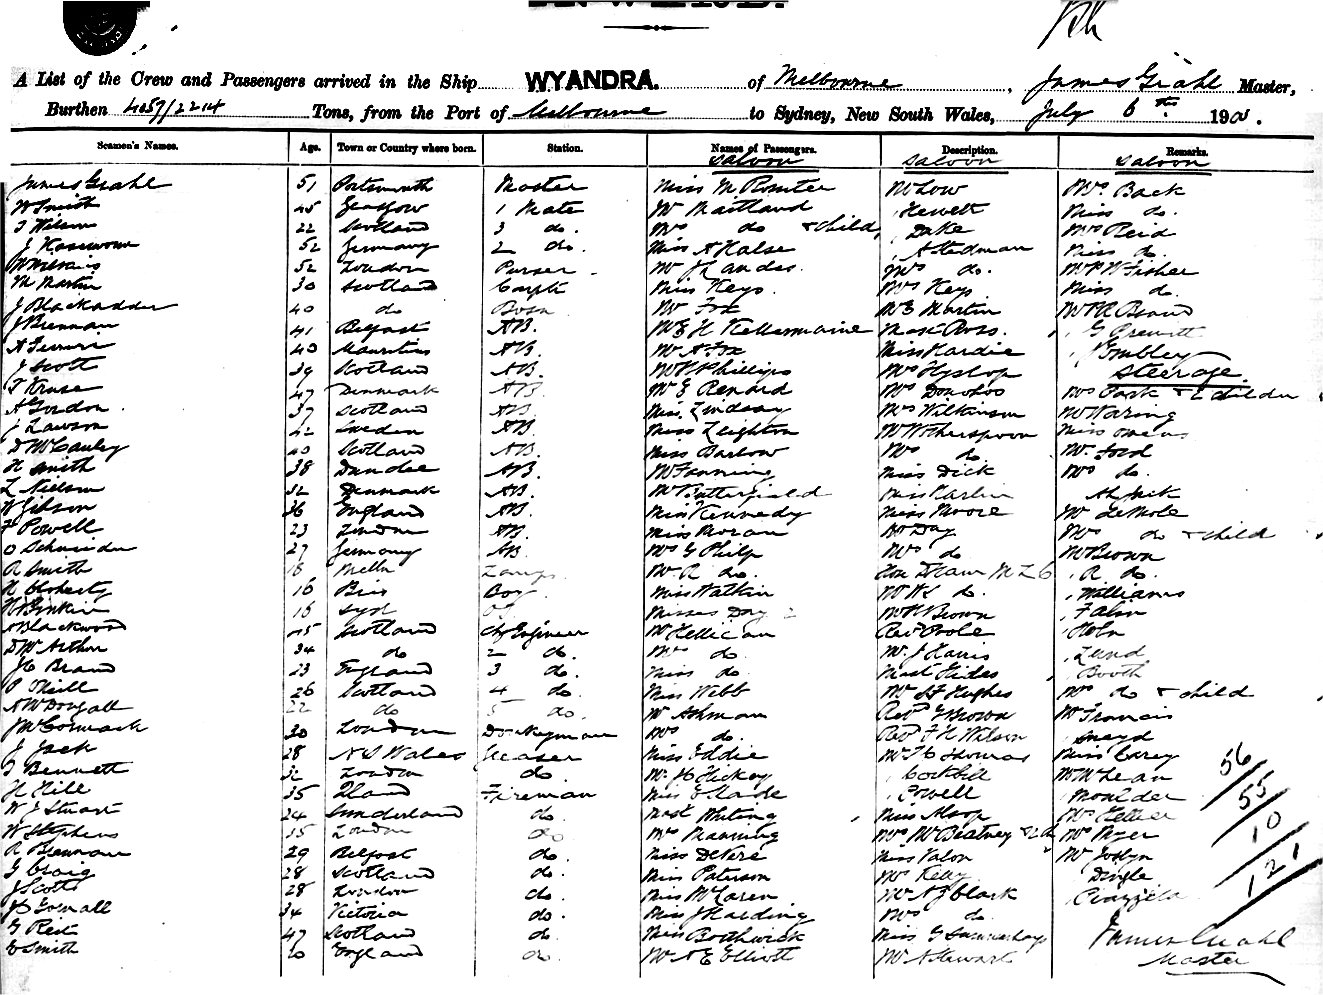 A List of the Crew and Passengers arrived in the Ship WYANDRA. of Melbourne, James Grahl Master,
Burthen 4057/2214 Tons, from the Port of Melbourne to Sydney, New South Wales, July 6th 190
Seamen's Names. Age. Town or Country where born. Station. Names of Passengers. Description. Remarks.
Saloon Saloon Saloon
James Grahl 51 Portsmouth Master Miss M Rounter Mr Low Mrs Back
W Smith 45 Glasgow 1 Mate Mr Maitland Hewett Miss do.
J Wilson 22 Scotland 3 do. Mrs do & child Dake Mrs Reid
J 52 Germany 2 do. Miss A Halse A Stedman Miss do.
52 London Purser Mr J Landes Mrs do. Mr P W Fisher
M Martin 30 Scotland Carptr Miss Keys Mrs Keys Miss do.
J Blackadder 40 do Bosn Mr Fox Mr E Martin Mr A R Brand
J Brennan 41 Belfast AB. Mr E H Kellermaine Mast Ross. G Prewett
A Ferrure 40 Mauritius AB. Mr A Fox Miss Hardie J Tombley
J Scott 39 Scotland AB. Mr H Phillips Mrs Hyslop Steerage
T Kruse 47 Denmark AB. Mr E Renard Mrs Donohoe Mrs Park & 2 children
A Gordon 37 Scotland AB. Miss Lindsay Mrs Wilkinson Mr Waring
J Lawson 42 Sweden AB. Miss Leighton Mr Wotherspoon Miss Owens
D McCauley 40 Scotland AB. Miss Barlow Mrs do. Mr. Ford
H Smith 38 Dundee AB. Mr Fanning Miss Dick Mrs do.
L Nielson 32 Denmark AB. Mr Butterfield Miss Karlin Ah Jack
W Gibson 36 England AB. Miss Kennedy Miss Moore Mr LeMole
F Powell 23 London AB. Miss Moran Mr Day Mrs do & child
O Schneider 27 Germany AB Mrs G Philp Mrs do Mr Brown
A Smith 18 Melb Lamps. Mr. R do. Hon MLC R do.
H Cloherty 16 Bris Boy Miss Watkin Mr W S do. Williams
16 Syd Misses Day 2 Mr H Brown Falin
A Blackwood 45 Scotland Chf Engineer Mr Hellican Revd Poole Holn
D McArthur 34 do 2 do. Mrs do. Mr. J Harris Lund
J C Brand 23 England 3 do. Miss do Mast Hides Booth
P Thill 26 Scotland 4 do. Miss Webb Mr H Hughes Mrs do & child
A McDougall 22 do 5 do. Mr Ashman Revd G Brown Mr Francis
J McCormack 30 London Donkeyman Mrs do. Revd F H Wilson Sneyd
J Jack 28 N S Wales Greaser Miss Eddie Mr T C Thomas Miss Carey
J Bennett 32 London do. Mr. H Hickey Corkhill Mr McLean
H Hill 35 Fireman Miss E Slade Cowell Moulder
W J Stuart 24 Sunderland do. Mast Whiting Miss Alsop Mr Kellier
W Stephens 35 London do. Mrs Manning Mrs McBlatney & 2 Ch Mrs Pryer
A Brennan 29 Belfast do. Miss DeVere Miss Valon Mr Joslyn
G Craig 28 Scotland do. Miss Paterson Mr Kelly Dingle
J Scott 28 London do. Miss McLaren Mr A J Clark Piazzeta
J C Gomall 34 Victoria do. Miss J Harding Mrs do.
G Reid 47 Scotland do. Miss Borthwick Miss G James Grahl
C Smith 20 England do. Mr A E Elliott Mr A Stewart Master
56
55
10
121